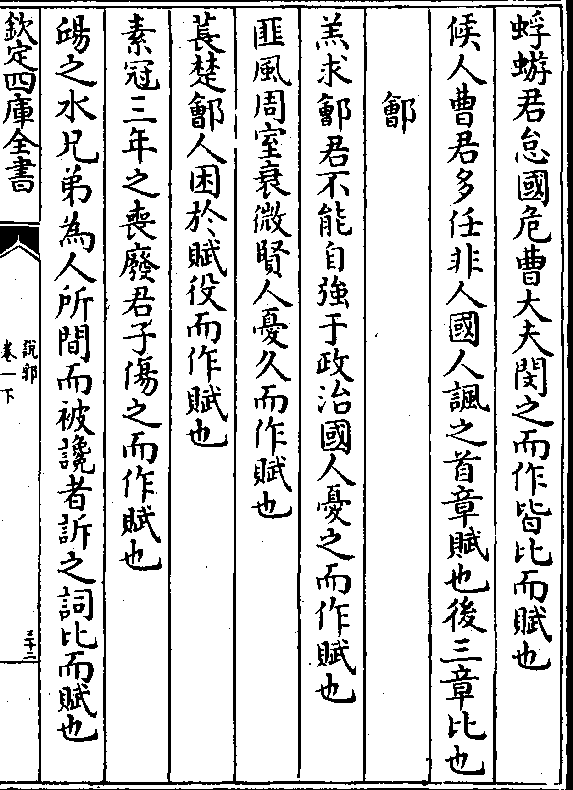 蜉蝣君怠國危曹大夫閔之而作皆比而賦也
候人曹君多任非人國人諷之首章賦也後三章比也
鄶
羔求鄶君不能自強于政治國人憂之而作賦也
匪風周室衰微賢人憂久而作賦也
萇楚鄶人困於賦役而作賦也
素冠三年之喪廢君子傷之而作賦也
𦾔之水兄弟為人所間而被讒者訴之詞比而賦也
欽定四庫全書
說郛
卷一下
三十二